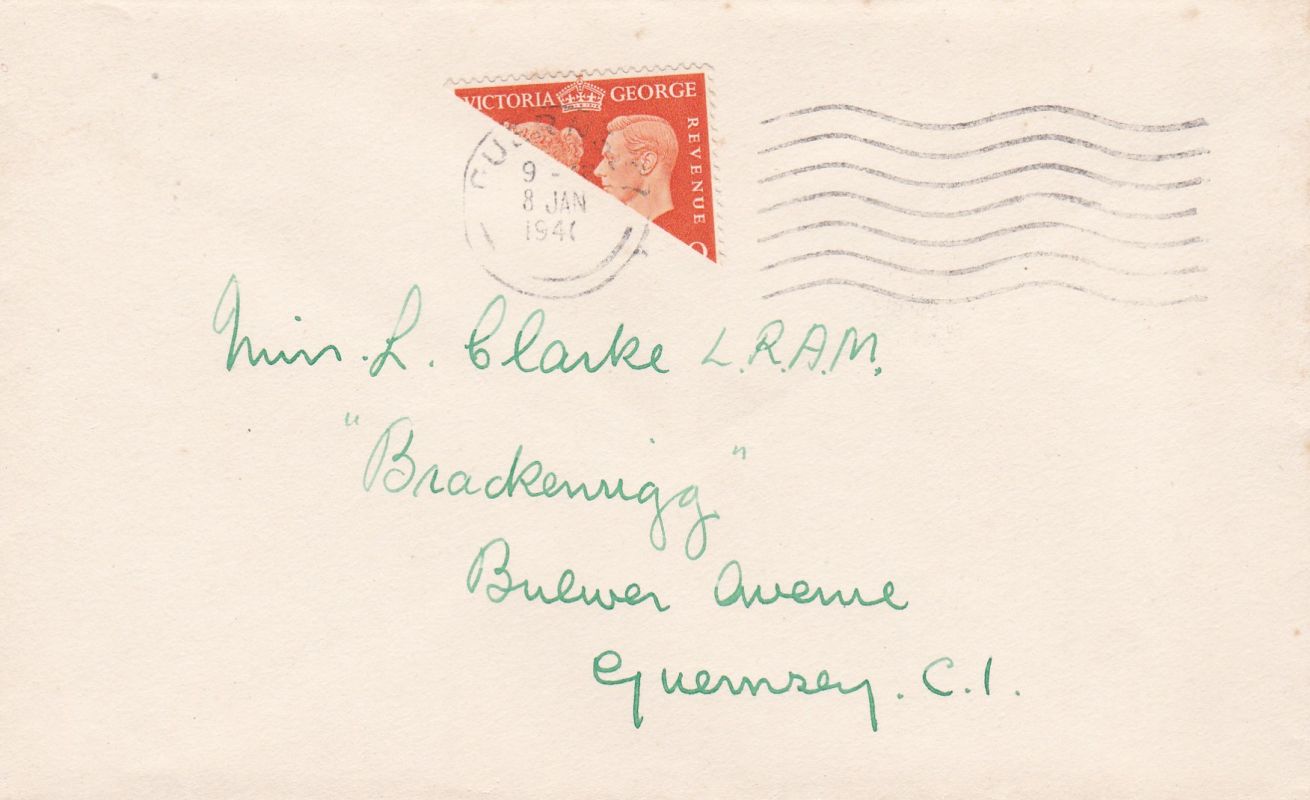 VICTORIA GEORGE
REVENUE
GUERNSEY
9 -
8 JAN
194
Miss. L. Clarke L.R.A.M.
"Brackenrigg"
Bulwer Avenue
Guernsey. C.I.